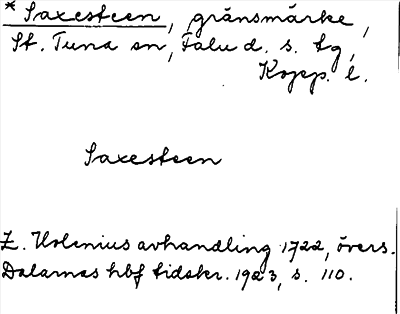 * Saxesteen, gränsmärke,
St. Tuna sn, Falu d. s. tg,
Kopp. l.
Saxesteen
E. Holenius avhandling 1722, övers.
Dalarnas hbf tidskr. 1923, s. 110.